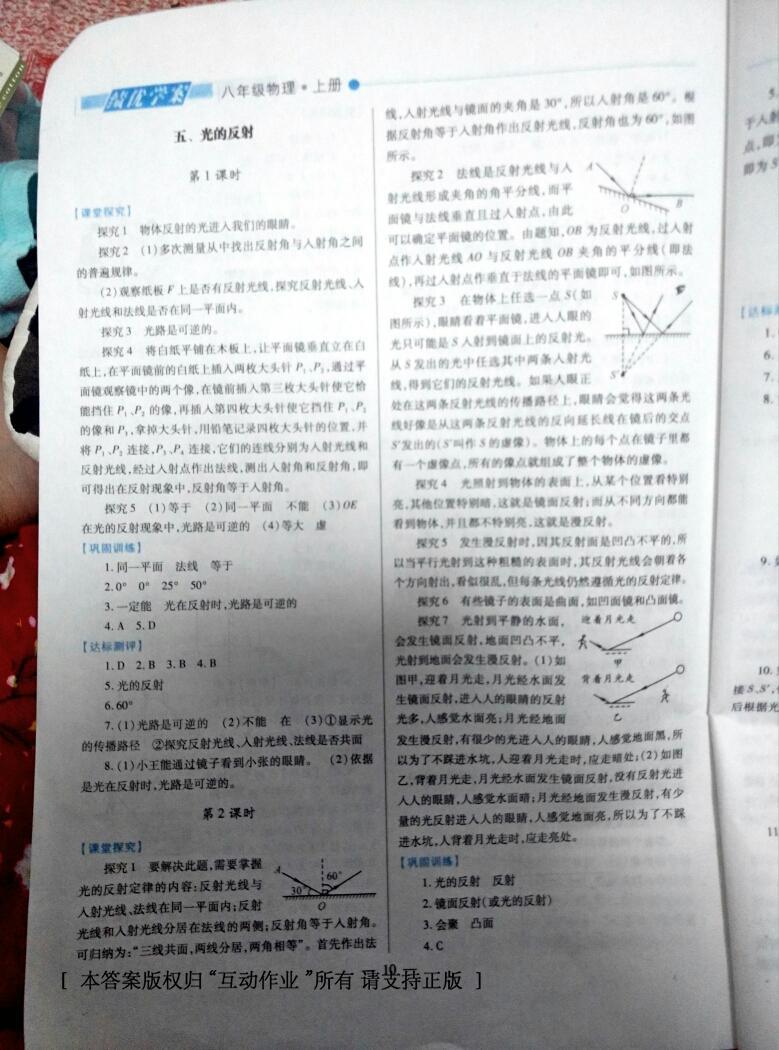 绩优学案 八年级物理·上册
五、光的反射
第1课时
【课堂探究】
探究1 物体反射的光进入我们的眼睛。
探究2 (1)多次测量从中找出反射角与入射角之间
的普遍规律。
(2)观察纸板F上是否有反射光线,探究反射光线、入
射光线和法线是否在同一平面内。
探究3 光路是可逆的。
探究4 将白纸平铺在木板上,让平面镜垂直立在白
纸上,在平面镜前的白纸上插入两枚大头针P₁、P₂,通过平
面镜观察镜中的两个像,在镜前插入第三枚大头针使它恰
能挡住P₁、P₂的像,再插入第四枚大头针使它挡住P₁、P₂
的像和P₃,拿掉大头针,用铅笔记录四枚大头针的位置,并
将P₁、P₂连接,P₃、P₄连接,它们的连线分别为入射光线和
反射光线,经过入射点作出法线,测出入射角和反射角,即
可得出在反射现象中,反射角等于入射角。
探究5 (1)等于 (2)同一平面 不能 (3)OE
在光的反射现象中,光路是可逆的 (4)等大 虚
【巩固训练】
1.同一平面 法线 等于
2.0° 0° 25° 50°
3.一定能 光在反射时,光路是可逆的
4.A 5.D
【达标测评】
1.D 2.B 3.B 4.B
5.光的反射
6.60°
7.(1)光路是可逆的 (2)不能 在 (3)①显示光
的传播路径 ②探究反射光线、入射光线、法线是否共面
8.(1)小王能通过镜子看到小张的眼睛。 (2)依据
是光在反射时,光路是可逆的。
第2课时
【课堂探究】
探究1 要解决此题,需要掌握
光的反射定律的内容:反射光线与
入射光线、法线在同一平面内;反射
光线和入射光线分居在法线的两侧;反射角等于入射角。
可归纳为:“三线共面,两线分居,两角相等”。首先作出法
A 60°
30°
O
线,入射光线与镜面的夹角是30°,所以入射角是60°。根
据反射角等于入射角作出反射光线,反射角也为60°,如图
所示。
探究2 法线是反射光线与入
射光线形成夹角的角平分线,而平
面镜与法线垂直且过入射点,由此
可以确定平面镜的位置。由题知,OB为反射光线,过入射
点作入射光线AO与反射光线OB夹角的平分线(即法
线),再过入射点作垂直于法线的平面镜即可,如图所示。
A
O B
探究3 在物体上任选一点S(如
图所示),眼睛看着平面镜,进入人眼的
光只可能是S入射到镜面上的反射光。
从S发出的光中任选其中两条入射光
线,得到它们的反射光线。如果人眼正
处在这两条反射光线的传播路径上,眼睛会觉得这两条光
线好像是从这两条反射光线的反向延长线在镜后的交点
S′发出的(S′叫作S的虚像)。物体上的每个点在镜子里都
有一个虚像点,所有的像点就组成了整个物体的虚像。
S
S′
探究4 光照射到物体的表面上,从某个位置看特别
亮,其他位置特别暗,这就是镜面反射;而从不同方向都能
看到物体,并且都不特别亮,这就是漫反射。
探究5 发生漫反射时,因其反射面是凹凸不平的,所
以当平行光射到这种粗糙的表面时,其反射光线会朝着各
个方向射出,看似很乱,但每条光线仍然遵循光的反射定律。
探究6 有些镜子的表面是曲面,如凹面镜和凸面镜。
探究7 光射到平静的水面,
会发生镜面反射,地面凹凸不平,
光射到地面会发生漫反射。(1)如
图甲,迎着月光走,月光经水面发
生镜面反射,进入人的眼睛的反射
光多,人感觉水面亮;月光经地面
发生漫反射,有很少的光进入人的眼睛,人感觉地面黑,所
以为了不踩进水坑,人迎着月光走时,应走暗处;(2)如图
乙,背着月光走,月光经水面发生镜面反射,没有反射光进
入人的眼睛,人感觉水面暗;月光经地面发生漫反射,有少
量的光反射进入人的眼睛,人感觉地面亮,所以为了不踩
进水坑,人背着月光走时,应走亮处。
迎着月光走
甲
背着月光走
乙
【巩固训练】
1.光的反射 反射
2.镜面反射(或光的反射)
3.会聚 凸面
4.C
10
[ 本答案版权归“互动作业”所有 请支持正版 ]
5.
于入射
点,即
即为S
【达标
1.
6.
7.
8.
9.
10.
接S、S′,
后根据光
11